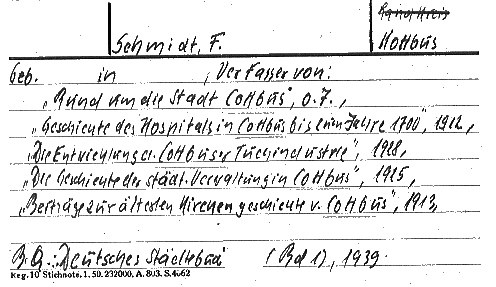 Land Kreis
Schmidt, F.
Kottbus
Geb. in , Verfasser von:
"Rund um die Stadt Cottbus", o.J.,
"Geschichte des Hospitals in Cottbus bis zum Jahre 1700", 1912,
"Die Entwicklung d. Cottbuser Tuchindustrie", 1928,
"Die Geschichte der städt. Verwaltung in Cottbus", 1915,
"Beiträge zur ältesten Kirchengeschichte v. Cottbus", 1913,
B.Q.: Deutsches Städtebuch (Bd 1), 1939.
Reg. 10 Stichnote. 1. 50. 232000. A. 803. S. 4062